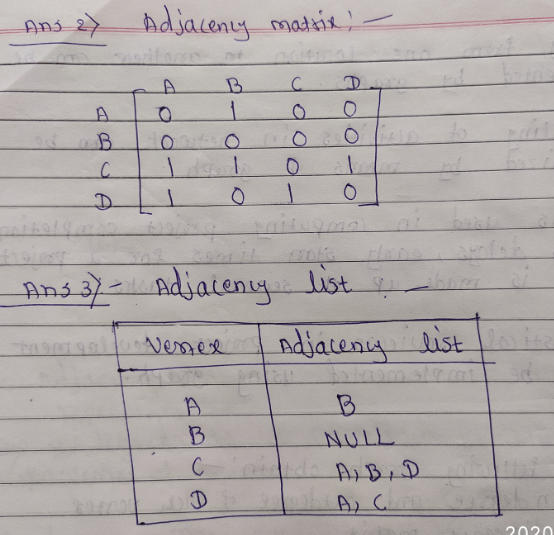 Ans 2) Adjaceny matrix :-
A B C D
A 0 1 0 0
B 0 0 0 0
C 1 1 0 1
D 1 0 1 0
Ans 3) - Adjaceny list :-
Vertex Adjaceny list
A B
B NULL
C A, B, D
D A, C
2020